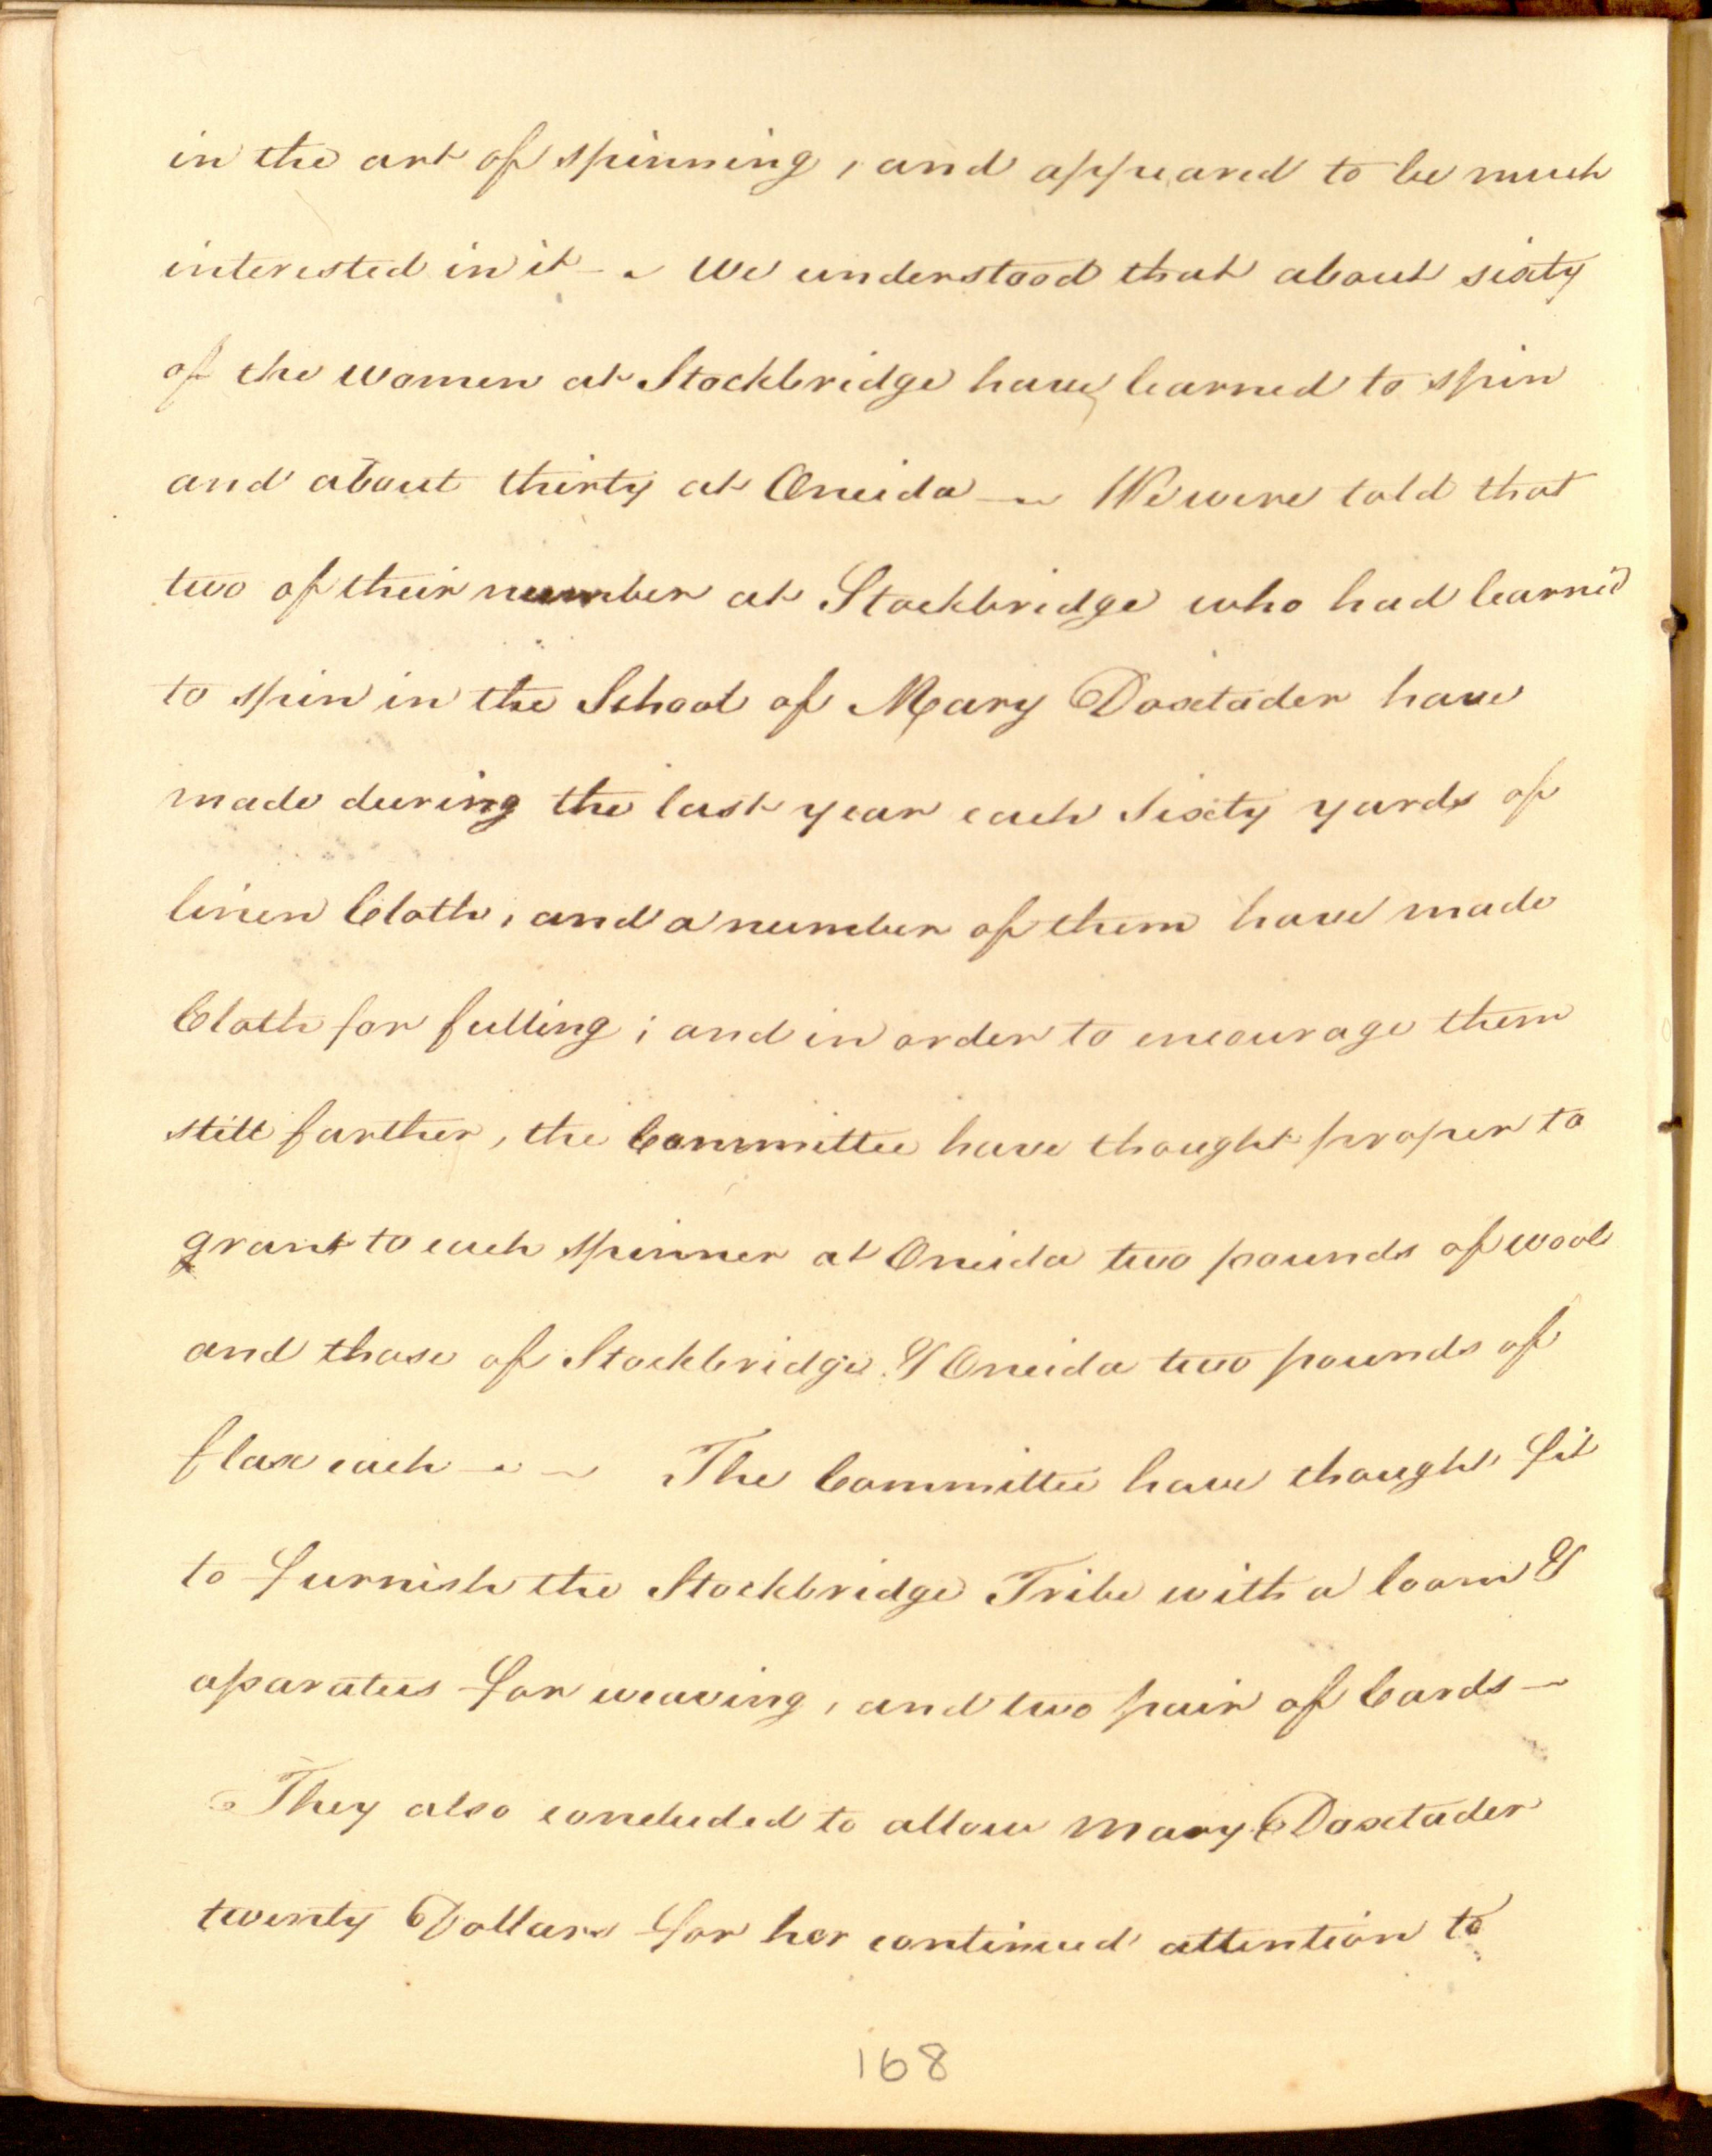 in the art of spinning, and appeared to be much
interested in it - - We understood that about sixty
of the women at Stockbridge have learned to spin
and about thirty at Oneida - We were told that
two of their number at Stockbridge who had learn'd
to spin in the School of Mary Doxtader have
made during the last year each Sixty yards of
linen Cloth, and a number of them have made
Cloth for fulling; and in order to encourage them
still farther, the Committee have thought proper to
grant to each spinner at Oneida two pounds of wool
and those of Stockbridge & Oneida two pounds of
flax each - - - The Committee have thought fit
to furnish the Stockbridge Tribe with a loom &
aparatus for weaving, and two pair of Cards -
They also concluded to allow Mary Doxtader
twenty Dollars for her continued attention to
168